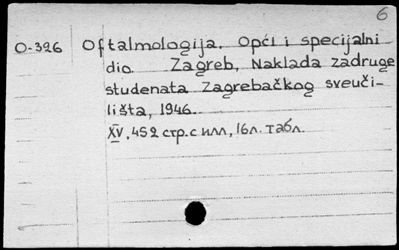 6
O-326 Oftalmologija. Opći i specijalni
dio. Zagreb, Naklada zadruge
studenata Zagrebačkog sveuči-
lišta, 1946.
XV, 452 стр. с илл, 16л. табл.